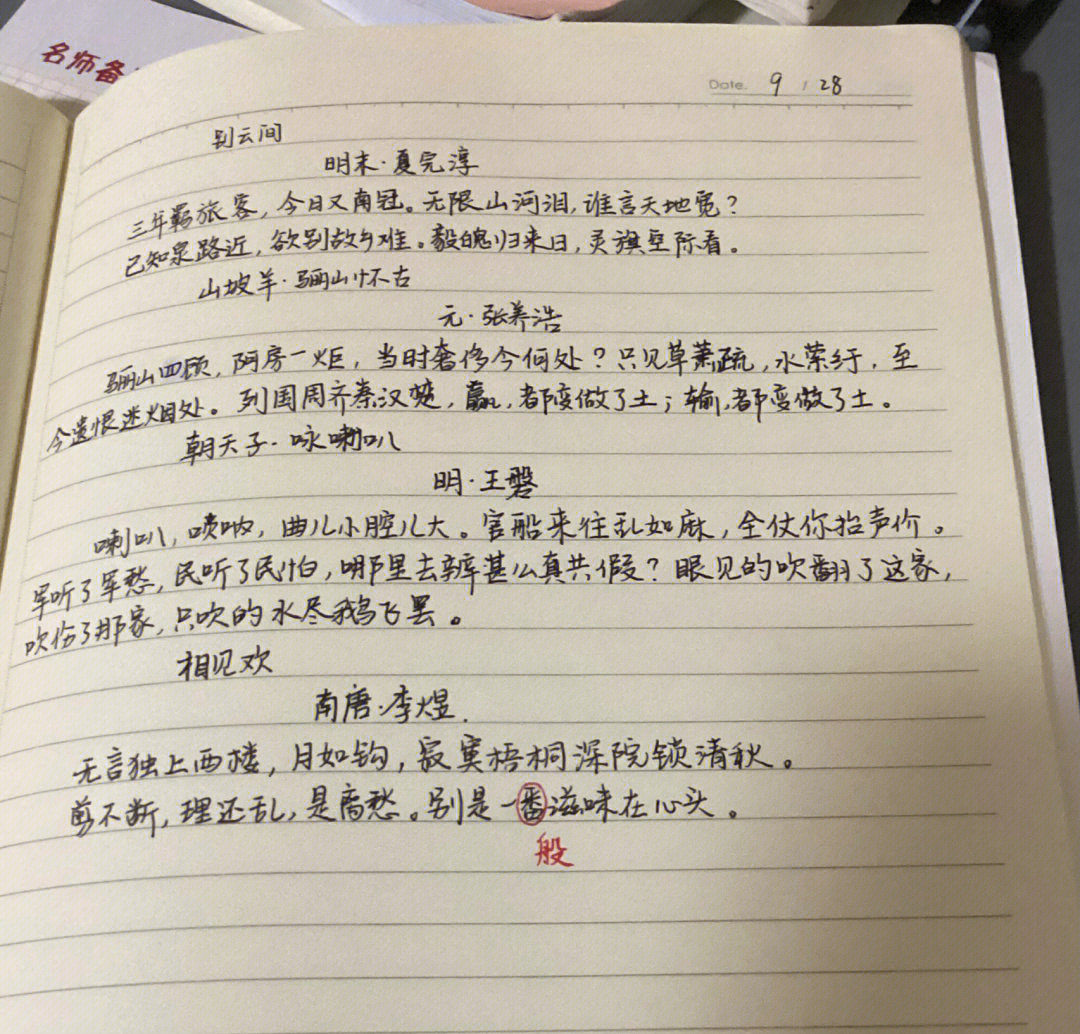 名师备
Date. 9 / 28
别云间
明末·夏完淳
三年羁旅客，今日又南冠。无限山河泪，谁言天地宽？
已知泉路近，欲别故乡难。毅魄归来日，灵旗空际看。
山坡羊·骊山怀古
元·张养浩
骊山四顾，阿房一炬，当时奢侈今何处？只见草萧疏，水萦纡，至
今遗恨迷烟处。列国周齐秦汉楚，赢，都变做了土；输，都变做了土。
朝天子·咏喇叭
明·王磐
喇叭，唢呐，曲儿小腔儿大。官船来往乱如麻，全仗你抬声价。
军听了军愁，民听了民怕，哪里去辨甚么真共假？眼见的吹翻了这家，
吹伤了那家，只吹的水尽鹅飞罢。
相见欢
南唐·李煜.
无言独上西楼，月如钩，寂寞梧桐深院锁清秋。
剪不断，理还乱，是离愁。别是一番滋味在心头。
般